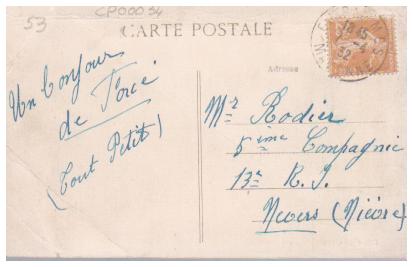 53
CP000 54
CARTE POSTALE
Adresse
Un bonjour
de Forcé
(Tout Petit)
Mr Rodier
5ième Compagnie
13e R. I.
Nevers (Nièvre)